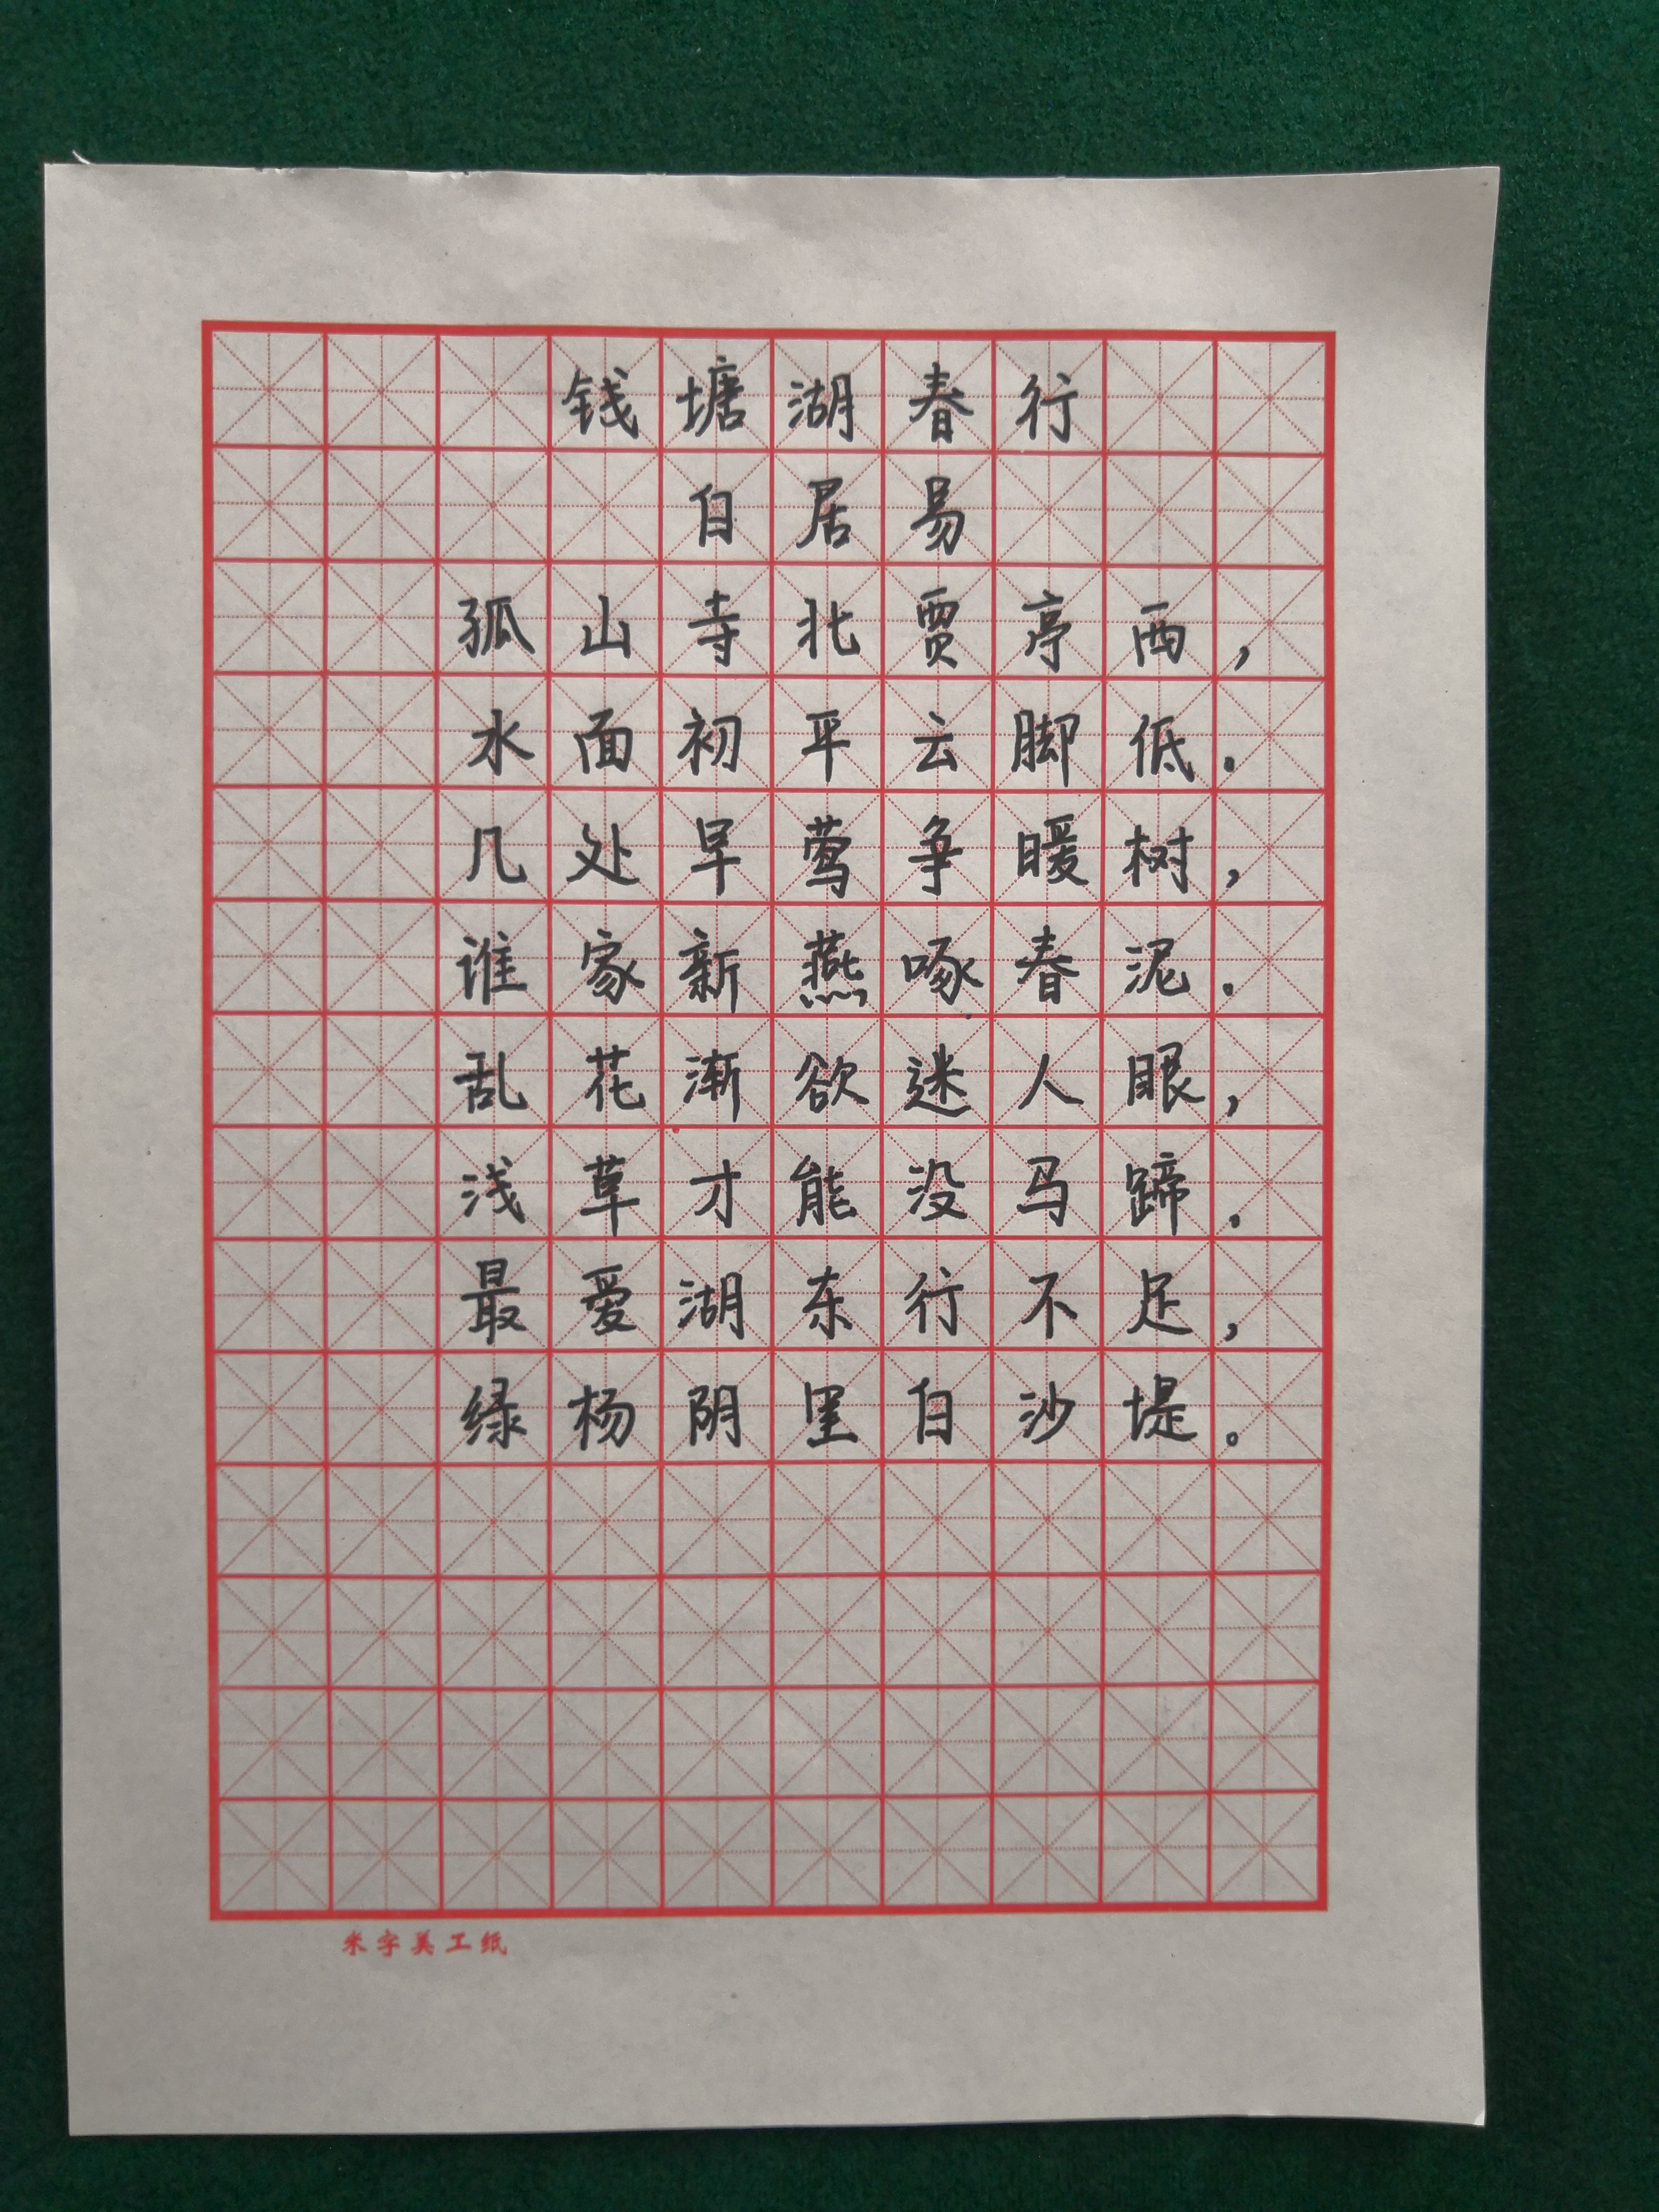 钱塘湖春行
白居易
孤山寺北贾亭西，
水面初平云脚低.
几处早莺争暖树，
谁家新燕啄春泥.
乱花渐欲迷人眼，
浅草才能没马蹄.
最爱湖东行不足，
绿杨阴里白沙堤。
米字美工纸